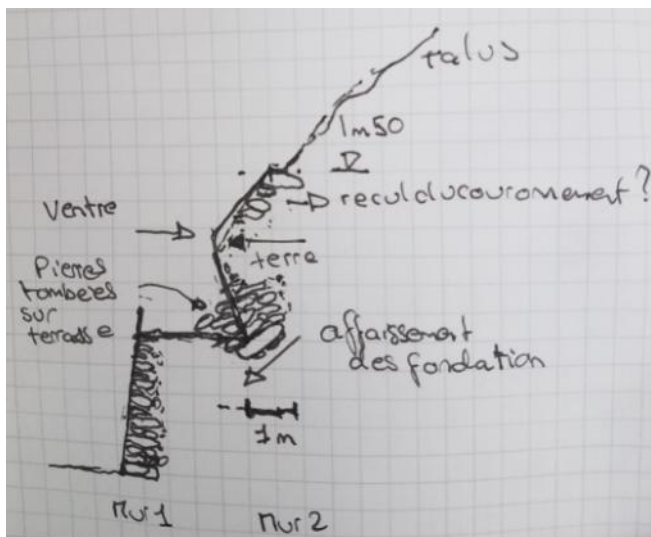 talus
1m50
recul du couronnement ?
Ventre
terre
Pierres
tombées
sur
terrasse
affaissement
des fondation
1m
Mur 1
Mur 2